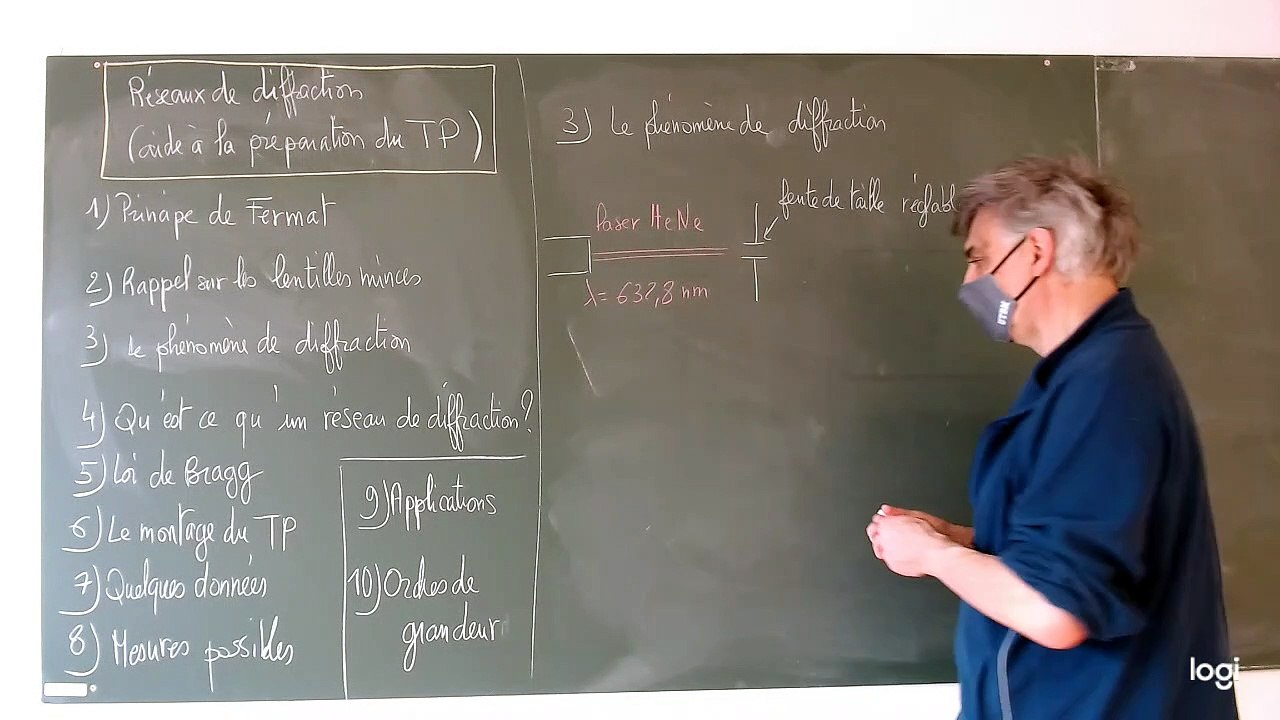 Réseaux de diffraction
(aide à la préparation du TP)
1) Principe de Fermat
2) Rappel sur les lentilles minces
3) Le phénomène de diffraction
4) Qu'est ce qu'un réseau de diffraction?
5) Loi de Bragg
6) Le montage du TP
7) Quelques données
8) Mesures possibles
9) Applications
10) Ordres de
grandeur
3) Le phénomène de diffraction
fente de taille réglabl
laser HeNe
λ = 632,8 nm
logi